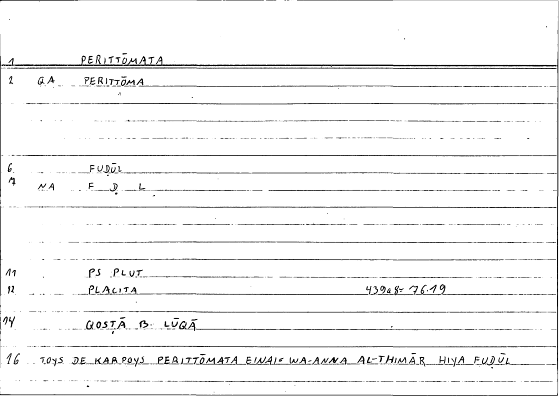 1 PERITTŌMATA
2 GA PERITTŌMA
6 FUḌŪL
7 NA F Ḍ L
11 PS PLUT
12 PLACITA 439a8= 76.19
14 QOSṬĀ B. LŪQĀ
16 TOYS DE KARPOYS PERITTŌMATA EINAI= WA-ANNA AL-THIMĀR HIYA FUḌŪL